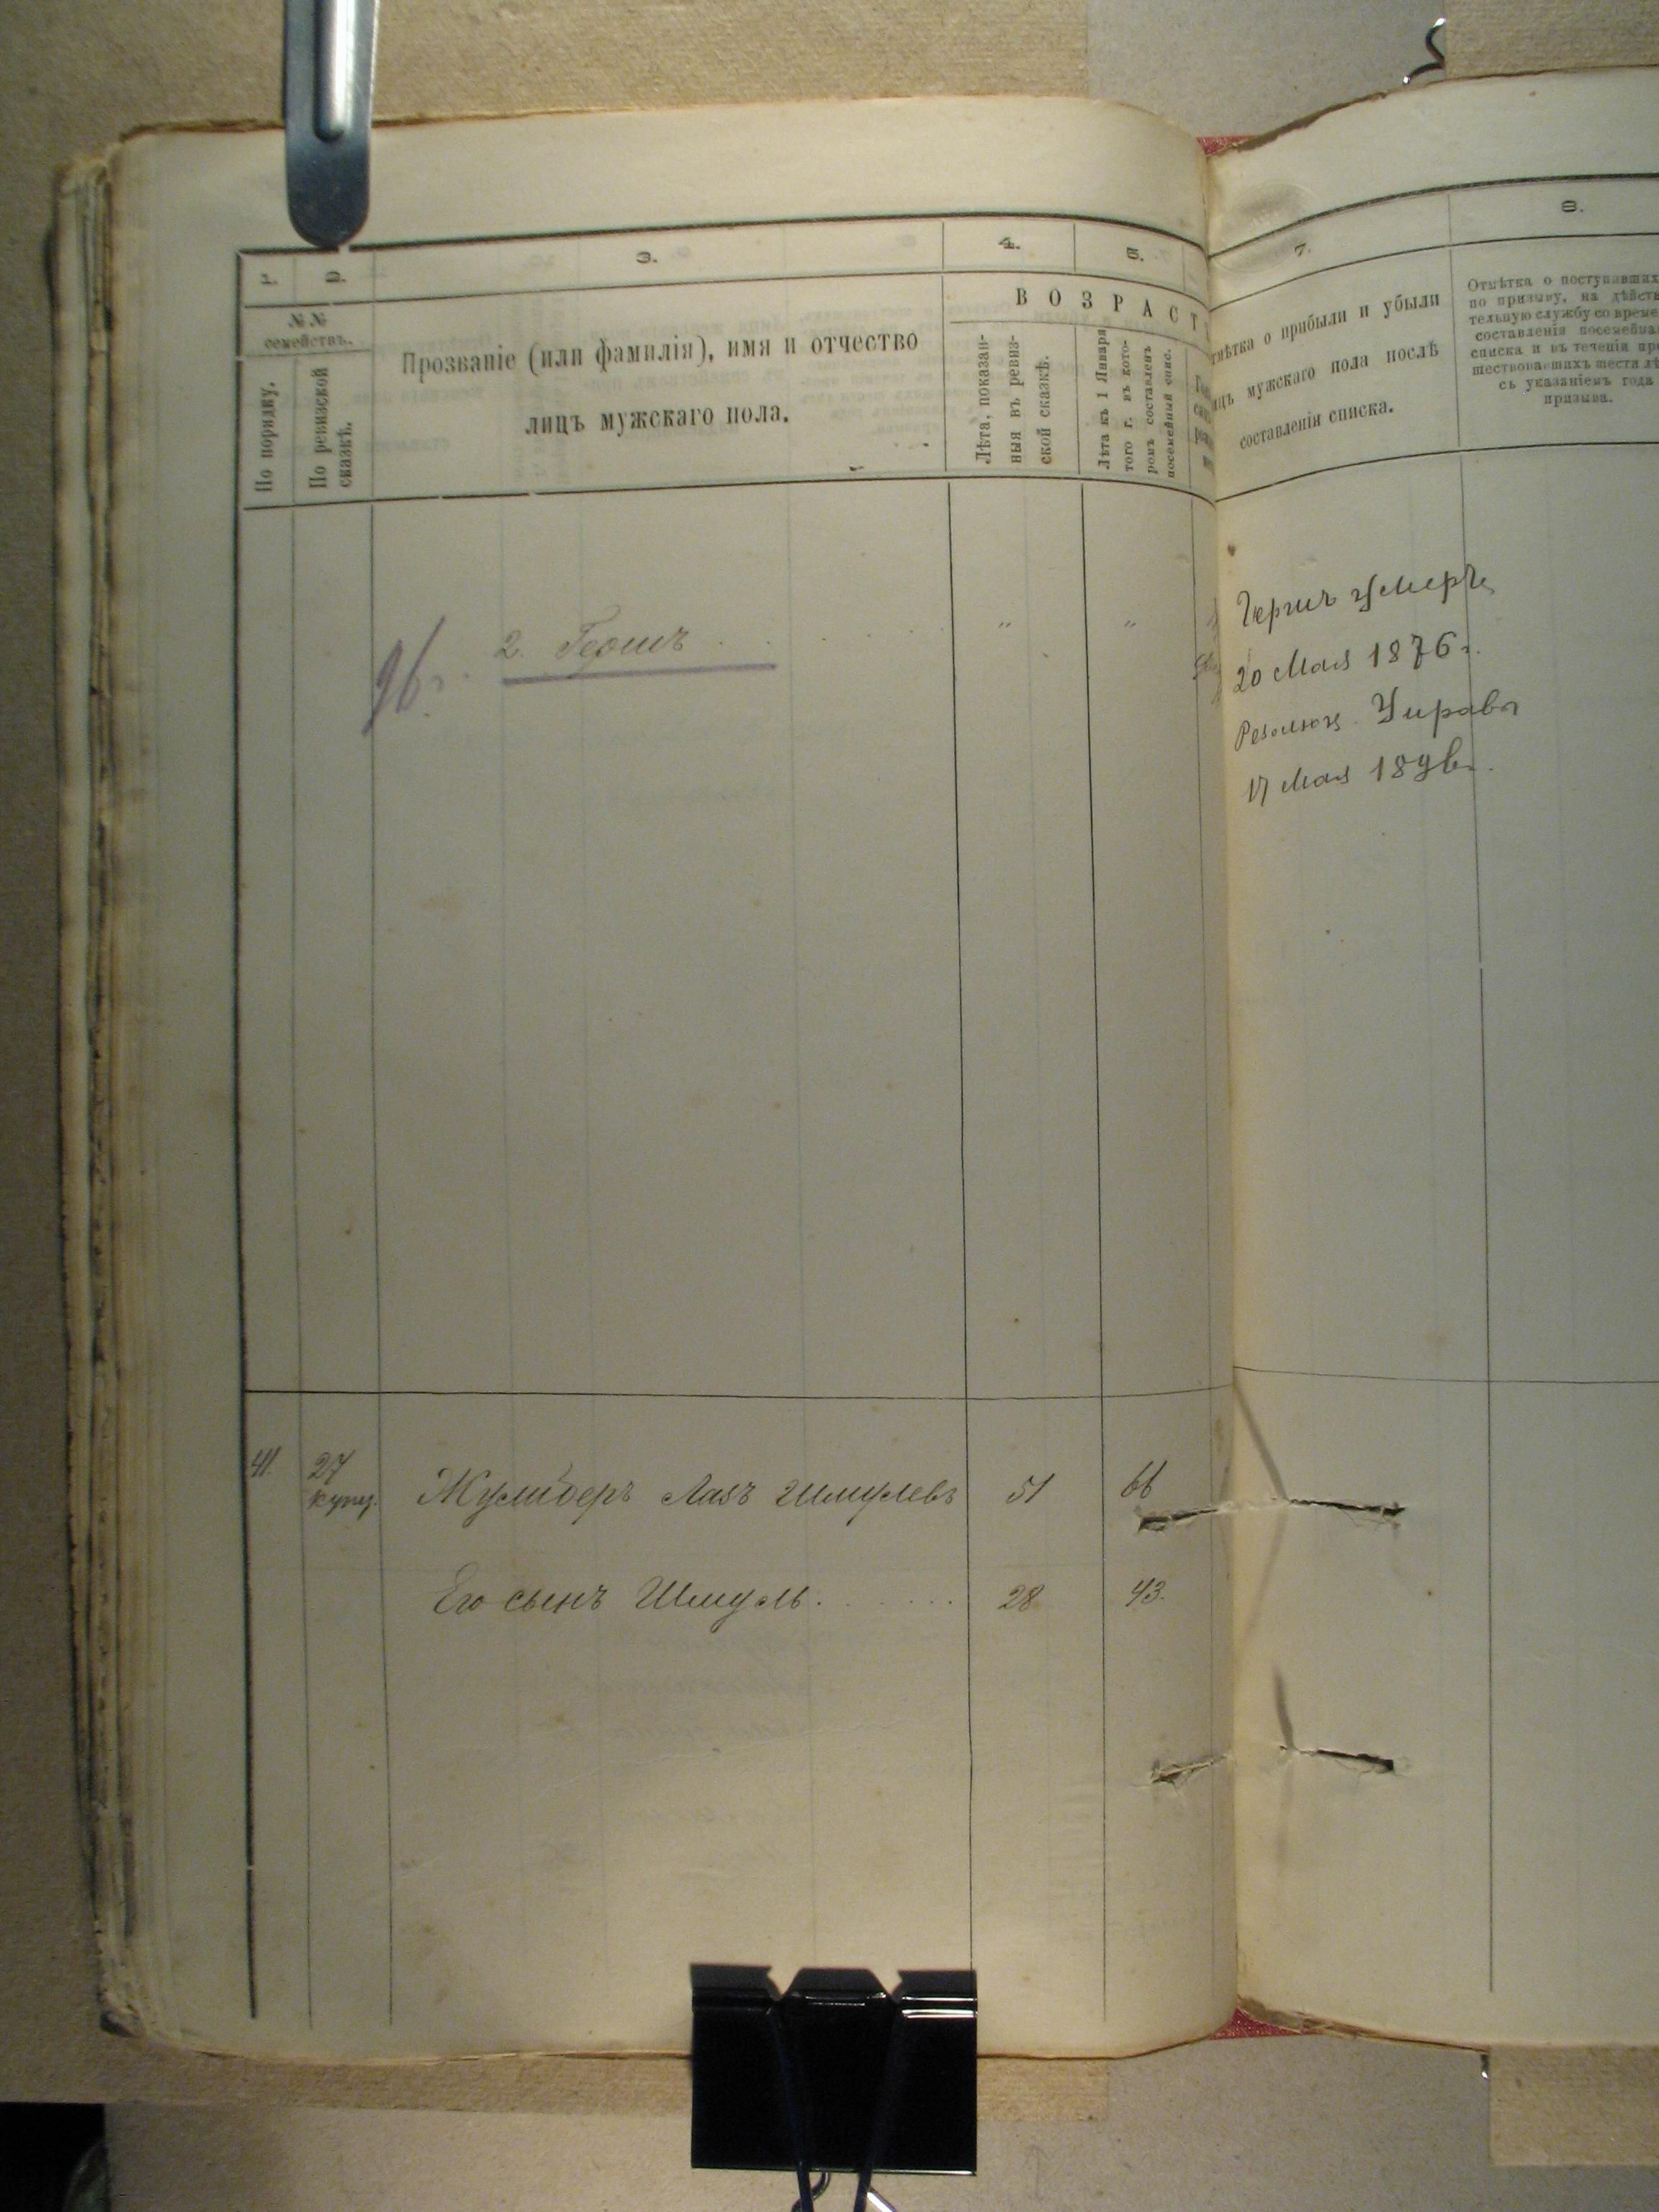 1.
2.
3.
4.
5.
7.
8.
№ №
семействъ.
По порядку.
По ревизской
сказкѣ.
Прозваніе (или фамилія), имя и отчество
лицъ мужскаго пола.
ВОЗРАСТ
Лѣта, показан-
ныя въ ревиз-
ской сказкѣ.
Лѣта къ 1 Января
того г. въ кото-
ромъ составленъ
посемейный спис.
мѣтка о прибыли и убыли
ицъ мужскаго пола послѣ
составленія списка.
Отмѣтка о поступавших
по призыву, на дѣйств
тельную службу со време
составленія посемейна
списка и въ теченіи пр
шествовавшихъ шести лѣ
съ указаніемъ года
призыва.
96 г.
2. Гершъ
"
"
Гершъ умеръ
20 Мая 1876 г.
Резолюц. Управы
17 Мая 1896 г.
41.
27
купц.
Лазъ Шмулевъ
51
66
Его сынъ Шмуль
28
43.